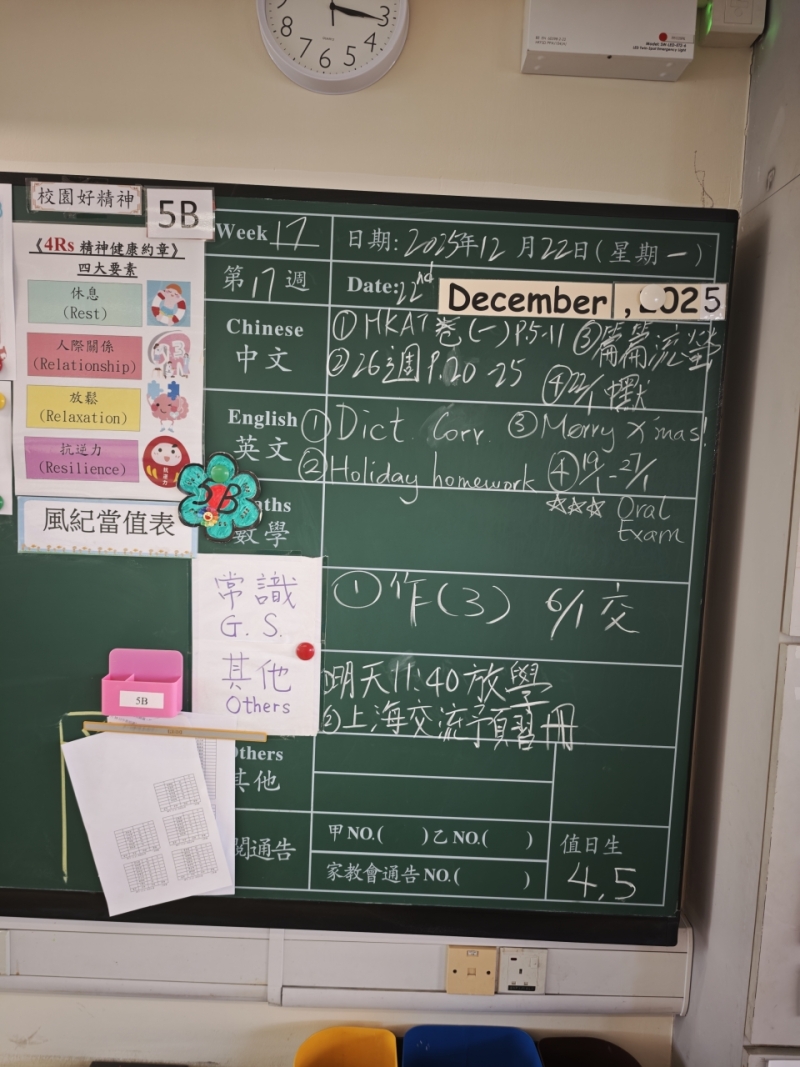 2
3
4
5
6
7
8
校園好精神
5B
《4Rs 精神健康約章》
四大要素
休息
(Rest)
人際關係
(Relationship)
放鬆
(Relaxation)
抗逆力
(Resilience)
抗逆力
5B
風紀當值表
Week 17
日期: 2025年12月22日(星期一)
第17週
Date: 22nd December, 2025
Chinese
中文
① HKAT 卷(一) P.5-11 ③篇篇流螢
② 26週 P.20-25 ④ 22/1 中默
English
英文
① Dict Corr. ③ Merry X'mas!
② Holiday homework ④ 19/1-27/1
☆☆☆ Oral
Exam
數學
常識
G.S.
① 作(3) 6/1 交
其他
Others
①明天11:40放學
②上海交流預習冊
Others
其他
閱通告
甲NO.( )乙NO.( )
家教會通告NO.( )
值日生
4,5
5B